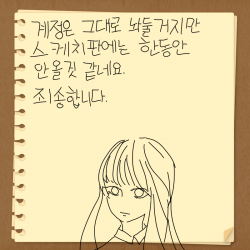 계정은 그대로 놔둘거지만
스케치판에는 한동안
안올것 같네요.
죄송합니다.